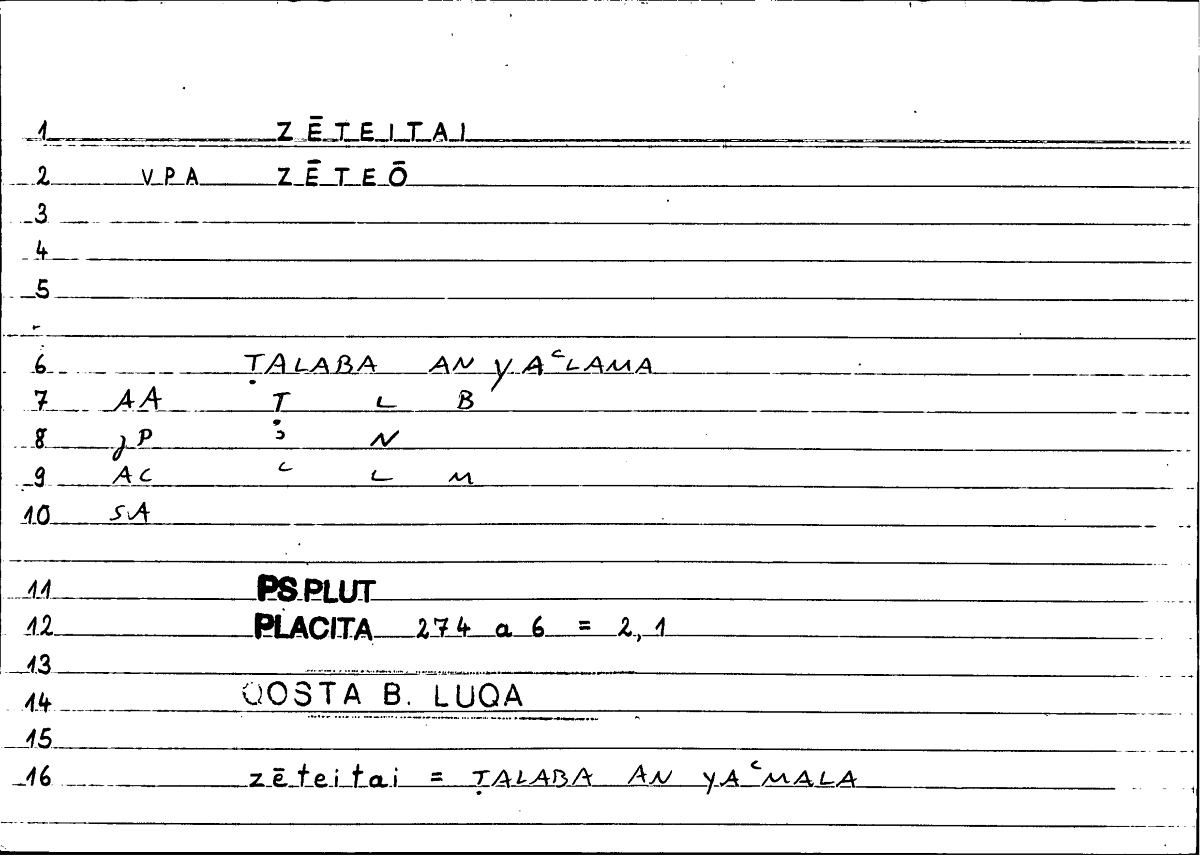 1 ZĒTEITAI
2 VPA ZĒTEŌ
3
4
5
6 ṬALABA AN YAʿLAMA
7 AA Ṭ L B
8 JP ʾ N
9 AC ʿ L M
10 SA
11 PS.PLUT
12 PLACITA 274 a 6 = 2,1
13
14 QOSTA B. LUQA
15
16 zēteitai = ṬALABA AN YAʿMALA